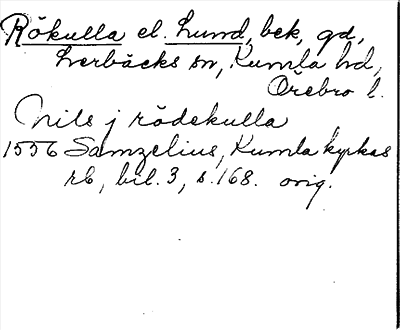 Rökulla el. Lund, bek, gd,
Lerbäcks sn, Kumla hd,
Örebro l.
Nils j rödekulla
1556 Samzelius, Kumla kyrkas
rb, bil. 3, s. 168. orig.